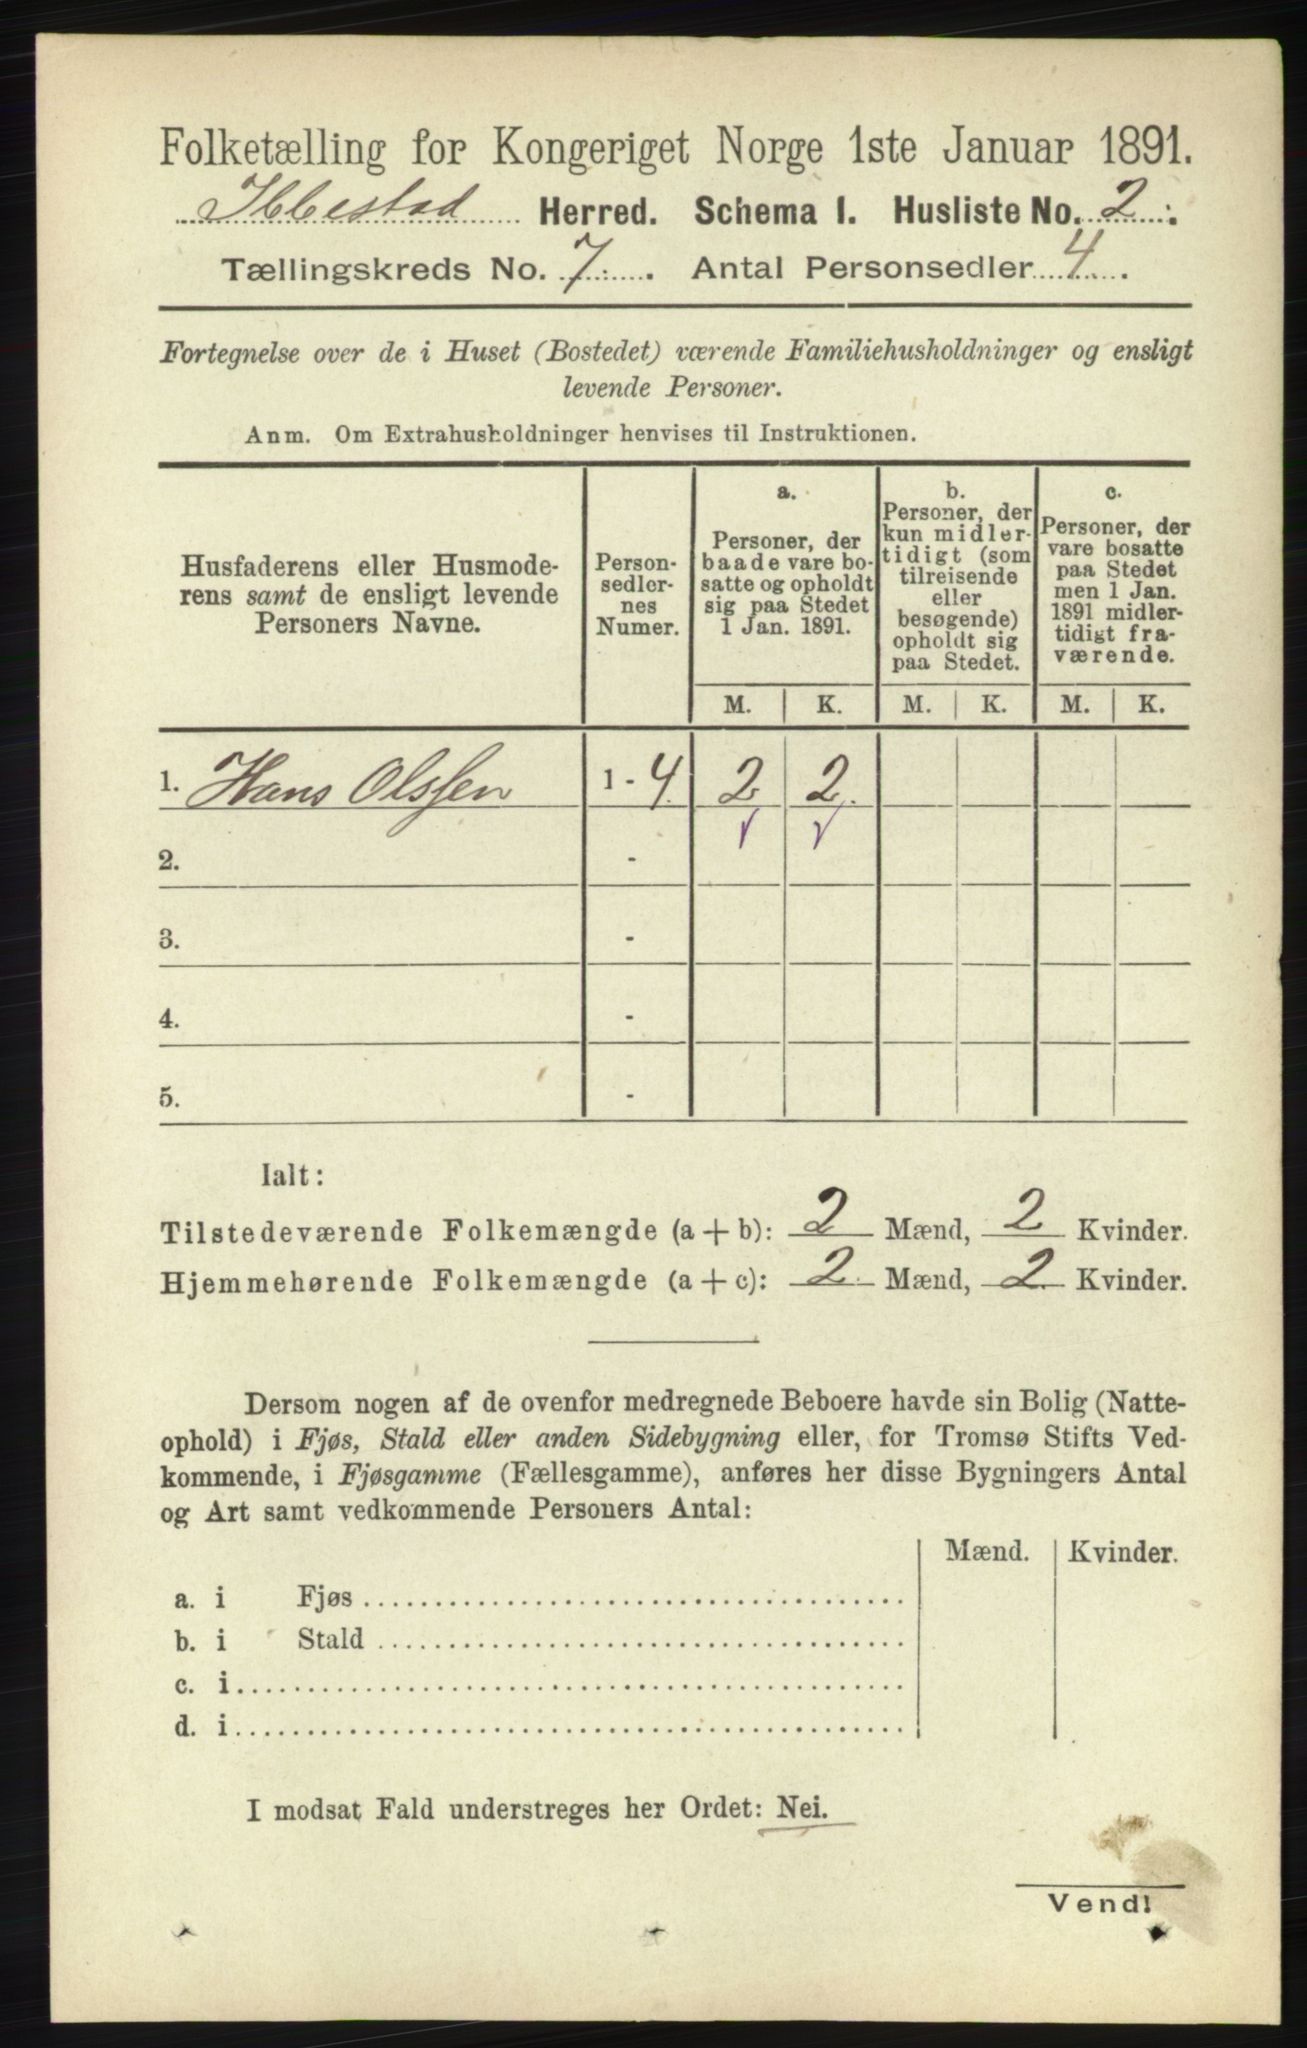 Folketælling for Kongeriget Norge 1ste Januar 1891.
Ibbestad Herred. Schema I. Husliste No. 2.
Tællingskreds No. 7. Antal Personsedler 4.
Fortegnelse over de i Huset (Bostedet) værende Familiehusholdninger og ensligt
levende Personer.
Anm. Om Extrahusholdninger henvises til Instruktionen.
Husfaderens eller Husmode-
rens samt de ensligt levende
Personers Navne.
Person-
sedler-
nes
Numer.
a.
Personer, der
baade vare bo-
satte og opholdt
sig paa Stedet
1 Jan. 1891.
b.
Personer, der
kun midler-
tidigt (som
tilreisende
eller
besøgende)
opholdt sig
paa Stedet.
c.
Personer, der
vare bosatte
paa Stedet
men 1 Jan.
1891 midler-
tidigt fra-
værende.
M. K. M. K. M. K.
1. Hans Olssen 1 - 4. 2 2.
2. -
3. -
4. -
5. -
Ialt:
Tilstedeværende Folkemængde (a + b): 2 Mænd, 2 Kvinder.
Hjemmehørende Folkemængde (a + c): 2. Mænd, 2. Kvinder.
Dersom nogen af de ovenfor medregnede Beboere havde sin Bolig (Natte-
ophold) i Fjøs, Stald eller anden Sidebygning eller, for Tromsø Stifts Ved-
kommende, i Fjøsgamme (Fællesgamme), anføres her disse Bygningers Antal
og Art samt vedkommende Personers Antal:
Mænd. Kvinder.
a. i Fjøs
b. i Stald
c. i
d. i
I modsat Fald understreges her Ordet: Nei.
Vend!